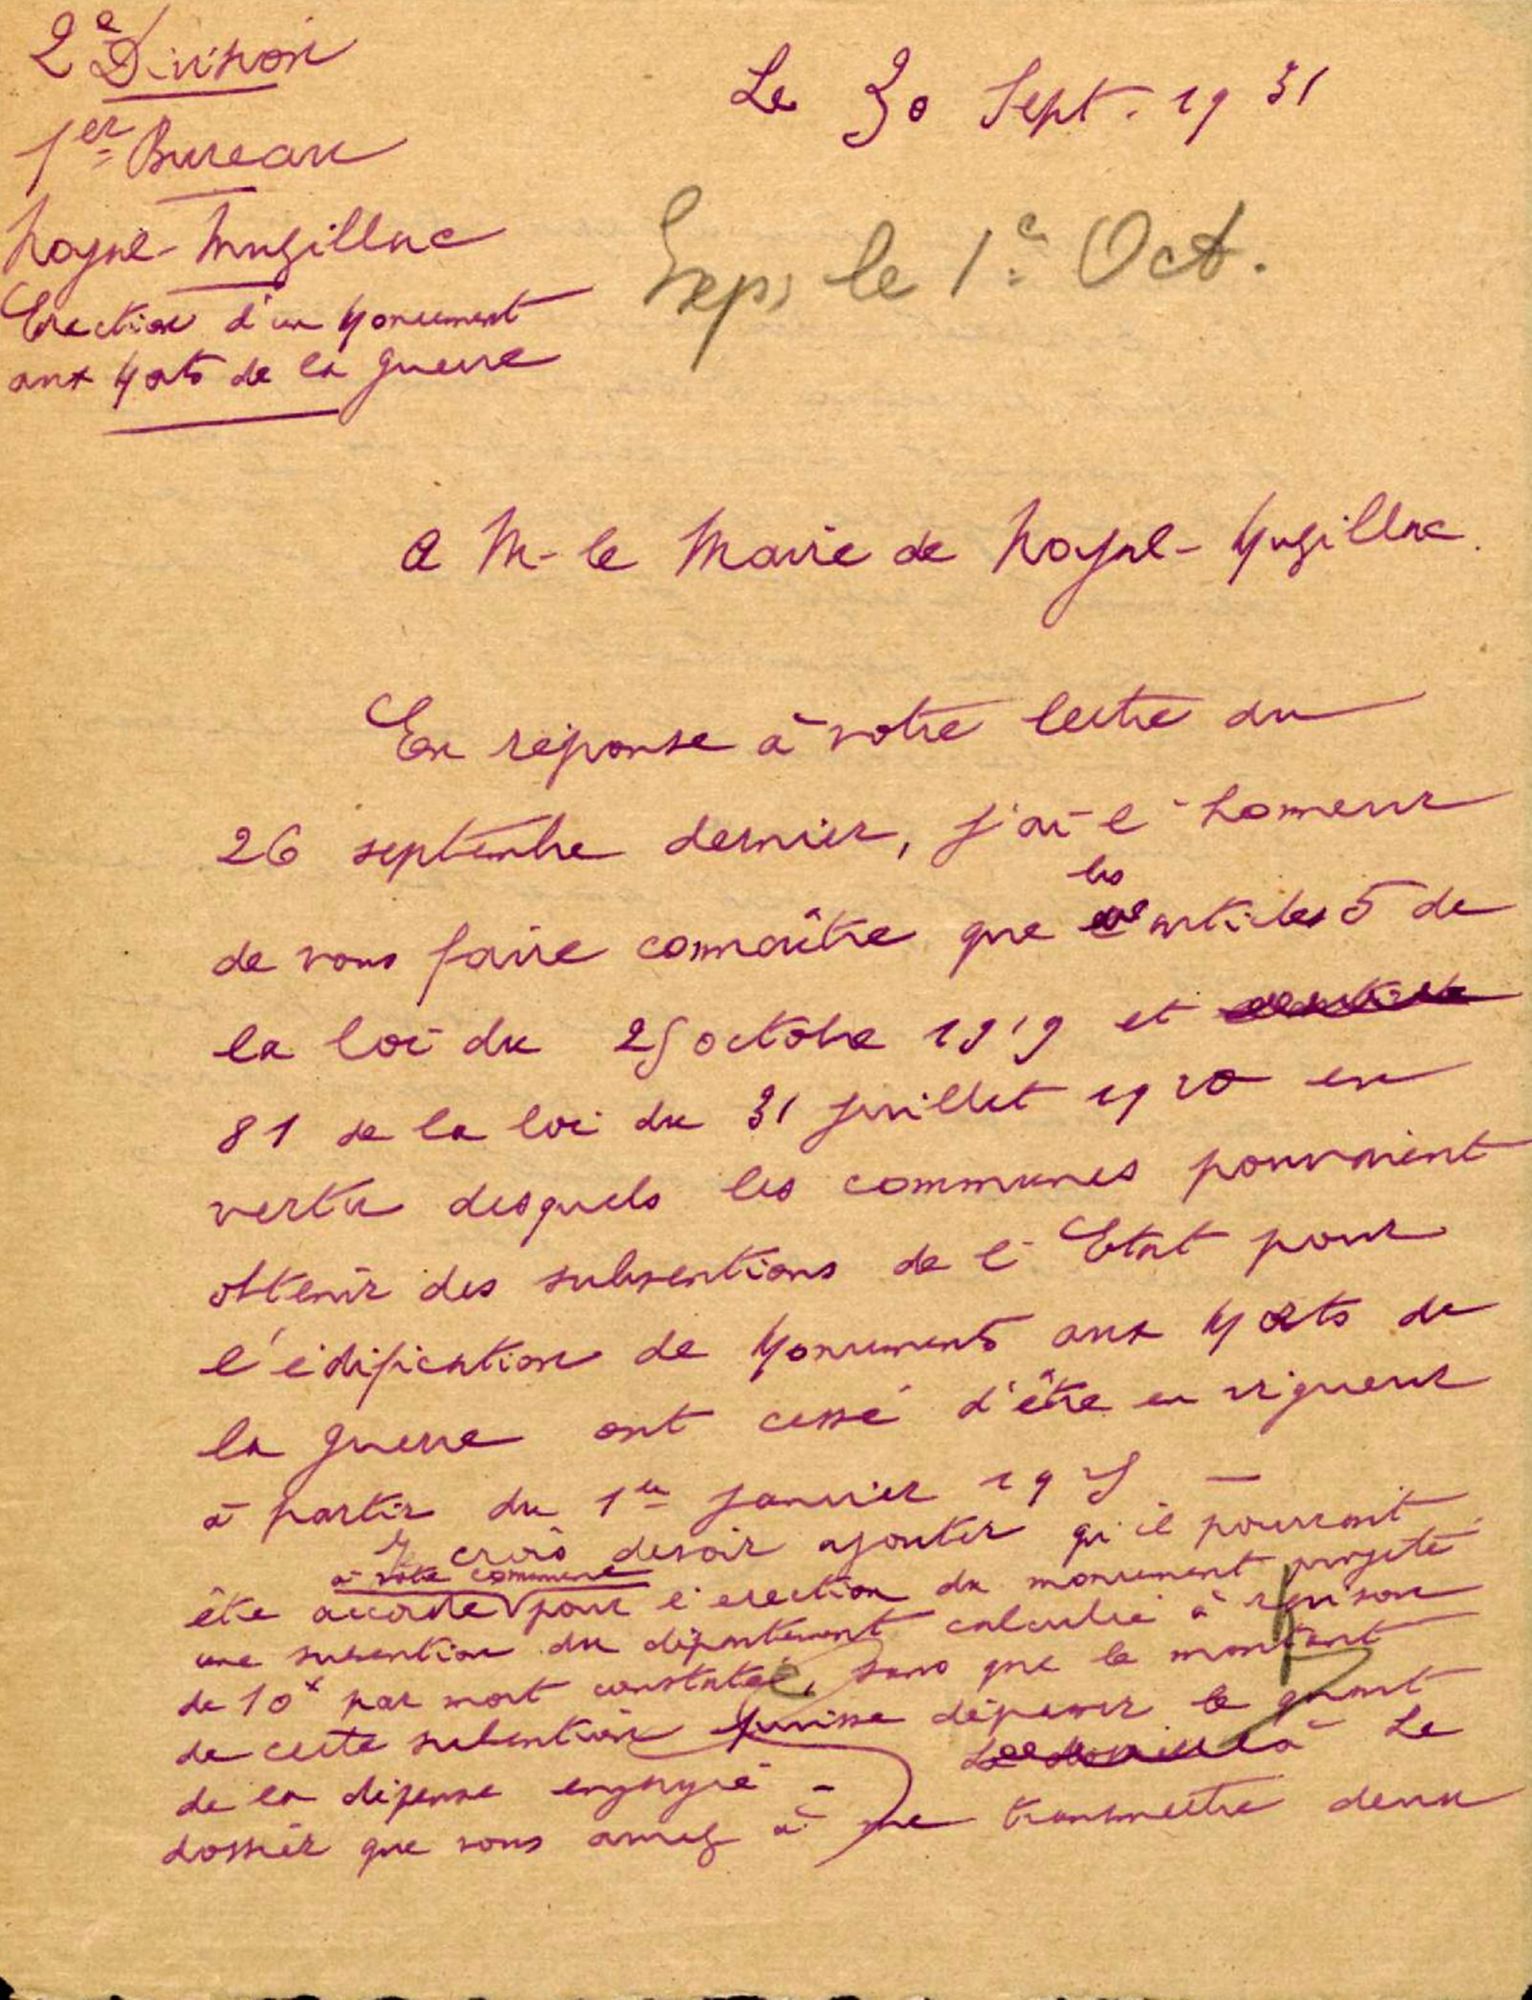 2e Division
Le 30 Sept. 1931
1er Bureau
Noyal-Muzillac
Exp. le 1e Oct.
Erection d'un Monument
aux Morts de la guerre
A M. le Maire de Noyal-Muzillac.
En réponse à votre lettre du
26 septembre dernier, j'ai l'honneur
les
de vous faire connaître que articles 5 de
la loi du 25 octobre 1919 et
81 de la loi du 31 juillet 1920 en
vertu desquels les communes pouvaient
obtenir des subventions de l'Etat pour
l'édification de Monuments aux Morts de
la guerre ont cessé d'être en vigueur
à partir du 1er janvier 1925 —
Je crois devoir ajouter qu'il pourrait
à votre commune
être accordé pour l'erection du monument projeté
une subvention du département calculée à raison
de 10f par mort constaté, sans que le montant
de cette subvention puisse dépasser le quart
de la dépense engagée - Le
dossier que vous aurez à me transmettre devra